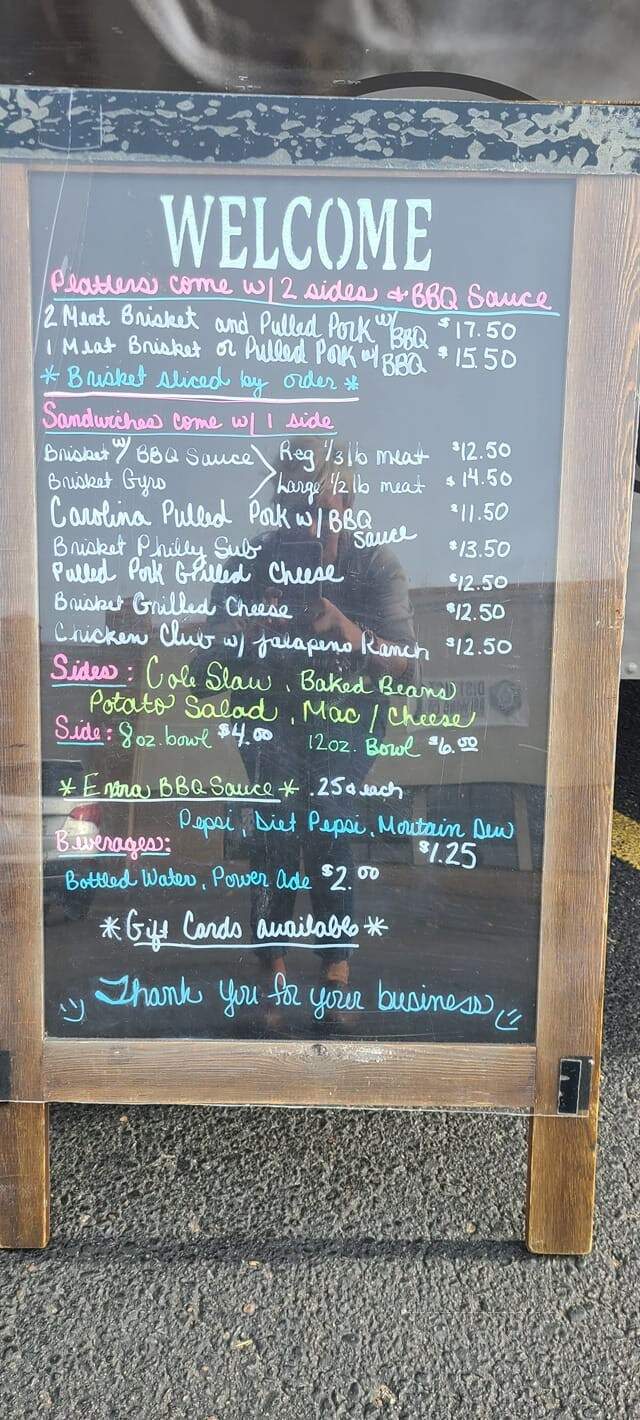 WELCOME
Platters come w/ 2 sides & BBQ Sauce
2 Meat Brisket and Pulled Pork w/ BBQ $17.50
1 Meat Brisket or Pulled Pork w/ BBQ $15.50
* Brisket sliced by order *
Sandwiches come w/ 1 side
Brisket w/ BBQ Sauce Reg 1/3 lb meat $12.50
Brisket Gyro Large 1/2 lb meat $14.50
Carolina Pulled Pork w/ BBQ sauce $11.50
Brisket Philly Sub $13.50
Pulled Pork Grilled Cheese $12.50
Brisket Grilled Cheese $12.50
Chicken Club w/ jalapeno Ranch $12.50
Sides: Cole Slaw, Baked Beans
Potato Salad, Mac / Cheese
Side: 8oz. bowl $4.00 12oz. Bowl $6.00
* Extra BBQ Sauce * .25¢ each
Pepsi, Diet Pepsi, Moutain Dew
Beverages: $1.25
Bottled Water, Power Ade $2.00
* Gift Cards available *
Thank you for your business